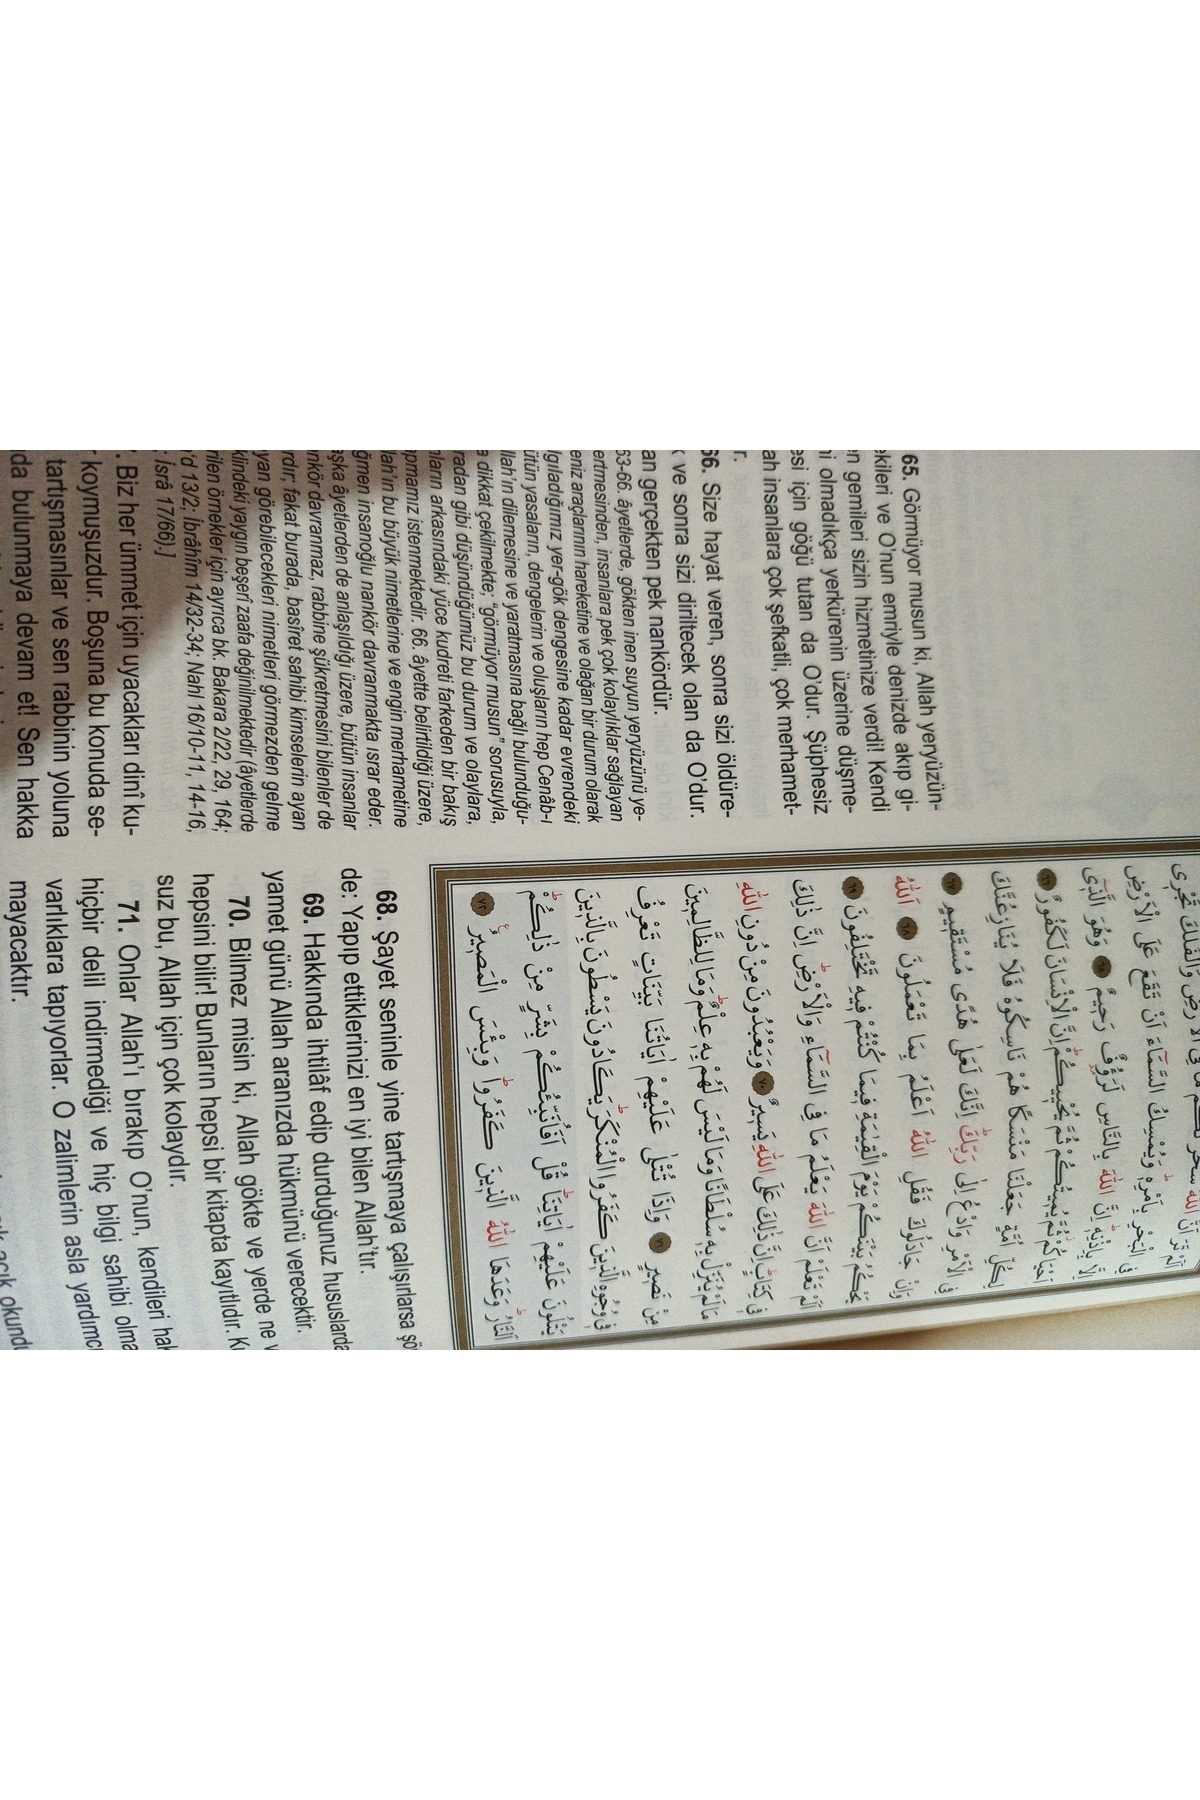 اَلَمْ تَرَ اَنَّ اللّٰهَ سَخَّرَ لَكُمْ مَا فِي الْاَرْضِ وَالْفُلْكَ تَجْرِي
فِي الْبَحْرِ بِاَمْرِه۪ وَيُمْسِكُ السَّمَٓاءَ اَنْ تَقَعَ عَلَى الْاَرْضِ
اِلَّا بِاِذْنِه۪ اِنَّ اللّٰهَ بِالنَّاسِ لَرَؤُ۫فٌ رَح۪يمٌ ٦٥ وَهُوَ الَّذ۪ٓي
اَحْيَاكُمْ ثُمَّ يُم۪يتُكُمْ ثُمَّ يُحْي۪يكُمْ اِنَّ الْاِنْسَانَ لَكَفُورٌ ٦٦
لِكُلِّ اُمَّةٍ جَعَلْنَا مَنْسَكًا هُمْ نَاسِكُوهُ فَلَا يُنَازِعُنَّكَ
فِي الْاَمْرِ وَادْعُ اِلٰى رَبِّكَ اِنَّكَ لَعَلٰى هُدًى مُسْتَق۪يمٍ ٦٧
وَاِنْ جَادَلُوكَ فَقُلِ اللّٰهُ اَعْلَمُ بِمَا تَعْمَلُونَ ٦٨ اَللّٰهُ
يَحْكُمُ بَيْنَكُمْ يَوْمَ الْقِيٰمَةِ ف۪يمَا كُنْتُمْ ف۪يهِ تَخْتَلِفُونَ ٦٩
اَلَمْ تَعْلَمْ اَنَّ اللّٰهَ يَعْلَمُ مَا فِي السَّمَٓاءِ وَالْاَرْضِ اِنَّ ذٰلِكَ
ف۪ي كِتَابٍ اِنَّ ذٰلِكَ عَلَى اللّٰهِ يَس۪يرٌ ٧٠ وَيَعْبُدُونَ مِنْ دُونِ اللّٰهِ
مَا لَمْ يُنَزِّلْ بِه۪ سُلْطَانًا وَمَا لَيْسَ لَهُمْ بِه۪ عِلْمٌ وَمَا لِلظَّالِم۪ينَ
مِنْ نَص۪يرٍ ٧١ وَاِذَا تُتْلٰى عَلَيْهِمْ اٰيَاتُنَا بَيِّنَاتٍ تَعْرِفُ
ف۪ي وُجُوهِ الَّذ۪ينَ كَفَرُوا الْمُنْكَرَ يَكَادُونَ يَسْطُونَ بِالَّذ۪ينَ
يَتْلُونَ عَلَيْهِمْ اٰيَاتِنَا قُلْ اَفَاُنَبِّئُكُمْ بِشَرٍّ مِنْ ذٰلِكُمْ
اَلنَّارُ وَعَدَهَا اللّٰهُ الَّذ۪ينَ كَفَرُوا وَبِئْسَ الْمَص۪يرُ ٧٢
65. Görmüyor musun ki, Allah yeryüzün-
ekileri ve O'nun emriyle denizde akıp gi-
en gemileri sizin hizmetinize verdi! Kendi
ni olmadıkça yerkürenin üzerine düşme-
esi için göğü tutan da O'dur. Şüphesiz
ah insanlara çok şefkatli, çok merhamet-
r.
66. Size hayat veren, sonra sizi öldüre-
k ve sonra sizi diriltecek olan da O'dur.
an gerçekten pek nankördür.
63-66. âyetlerde, gökten inen suyun yeryüzünü ye-
ertmesinden, insanlara pek çok kolaylıklar sağlayan
eniz araçlarının hareketine ve olağan bir durum olarak
lgıladığımız yer-gök dengesine kadar evrendeki
ütün yasaların, dengelerin ve oluşların hep Cenâb-ı
llah'ın dilemesine ve yaratmasına bağlı bulunduğu-
a dikkat çekilmekte; "görmüyor musun" sorusuyla,
radan gibi düşündüğümüz bu durum ve olaylara,
nların arkasındaki yüce kudreti farkeden bir bakış
pmamız istenmektedir. 66. âyette belirtildiği üzere,
lah'ın bu büyük nimetlerine ve engin merhametine
ğmen insanoğlu nankör davranmakta ısrar eder.
şka âyetlerden de anlaşıldığı üzere, bütün insanlar
nkör davranmaz, rabbine şükretmesini bilenler de
rdır; fakat burada, basîret sahibi kimselerin ayan
yan görebilecekleri nimetleri görmezden gelme
klindeki yaygın beşerî zaafa değinilmektedir (âyetlerde
rilen örnekler için ayrıca bk. Bakara 2/22, 29, 164;
'd 13/2; İbrâhîm 14/32-34; Nahl 16/10-11, 14-16,
; İsrâ 17/66).]
. Biz her ümmet için uyacakları dinî ku-
r koymuşuzdur. Boşuna bu konuda se-
tartışmasınlar ve sen rabbinin yoluna
da bulunmaya devam et! Sen hakka
68. Şayet seninle yine tartışmaya çalışırlarsa şö
de: Yapıp ettiklerinizi en iyi bilen Allah'tır.
69. Hakkında ihtilâf edip durduğunuz hususlarda
yamet günü Allah aranızda hükmünü verecektir.
70. Bilmez misin ki, Allah gökte ve yerde ne v
hepsini bilir! Bunların hepsi bir kitapta kayıtlıdır. Ku
suz bu, Allah için çok kolaydır.
71. Onlar Allah'ı bırakıp O'nun, kendileri hak
hiçbir delil indirmediği ve hiç bilgi sahibi olma
varlıklara tapıyorlar. O zalimlerin asla yardımcı
mayacaktır.
açık okundu